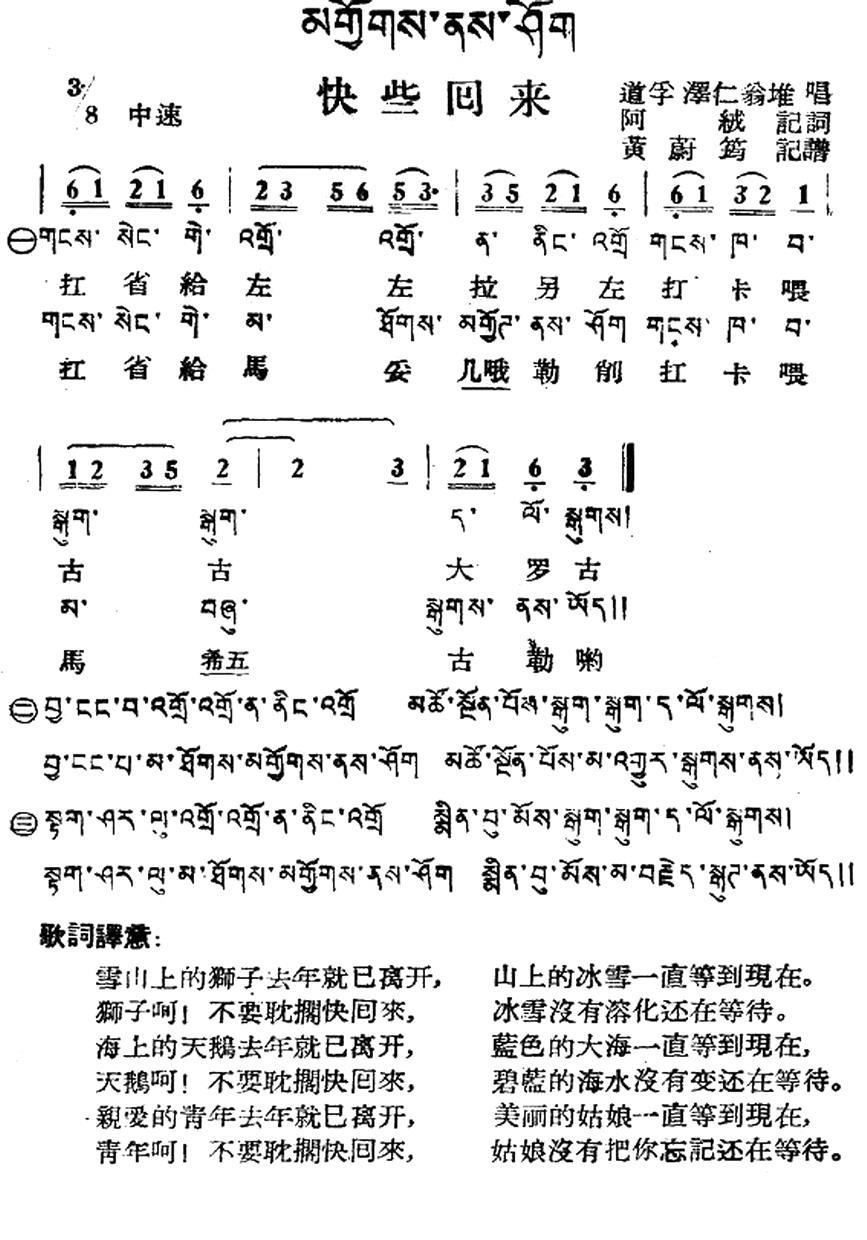 མགྱོགས་ནས་ཤོག
快些回来
3/8 中速
道孚 澤仁翁堆 唱
阿 絨 記詞
黃蔚筠 記譜
| 6 1 2 1 6 | 2 3 5 6 5 3· | 3 5 2 1 6 | 6 1 3 2 1 |
㊀གངས་ སེང་ གེ་ འགྲོ་ འགྲོ་ ན་ ནིང་ འགྲོ གངས་ ཁ་ བ་
扛 省 給 左 左 拉 另 左 打 卡 喂
གངས་ སེང་ གེ་ མ་ ཐོགས་ མགྱོཊ་ ནས་ ཤོག གངས་ ཁ་ བ་
扛 省 給 馬 妥 几哦 勒 削 扛 卡 喂
| 1 2 3 5 2 | 2 3 | 2 1 6 3 ‖
སྒུག་ སྒུག་ ད་ ལོ་ སྒུགས།
古 古 大 罗 古
མ་ བཞུ་ སྒུགས་ ནས་ ཡོད།།
馬 希五 古 勒 喲
㊁བྱ་ངང་བ་འགྲོ་འགྲོ་ན་ནིང་འགྲོ མཚོ་སྔོན་པོས་སྒུག་སྒུག་ད་ལོ་སྒུགས།
བྱ་ངང་པ་མ་ཐོགས་མགྱོགས་ནས་ཤོག མཚོ་སྔོན་པོས་མ་འགྱུར་སྒུགས་ནས་ཡོད།།
㊂སྟག་ཤར་ལུ་འགྲོ་འགྲོ་ན་ནིང་འགྲོ སྨིན་བུ་མོས་སྒུག་སྒུག་ད་ལོ་སྒུགས།
སྟག་ཤར་ལུ་མ་ཐོགས་མགྱོགས་ནས་ཤོག སྨིན་བུ་མོས་མ་བརྗེད་སྒུཊ་ནས་ཡོད།།
歌詞譯意：
雪山上的獅子去年就已离开， 山上的冰雪一直等到現在。
獅子呵！不要耽擱快回來， 冰雪沒有溶化还在等待。
海上的天鵝去年就已离开， 藍色的大海一直等到現在，
天鵝呵！不要耽擱快回來， 碧藍的海水沒有变还在等待。
親愛的青年去年就已离开， 美丽的姑娘一直等到現在，
青年呵！不要耽擱快回來， 姑娘沒有把你忘記还在等待。